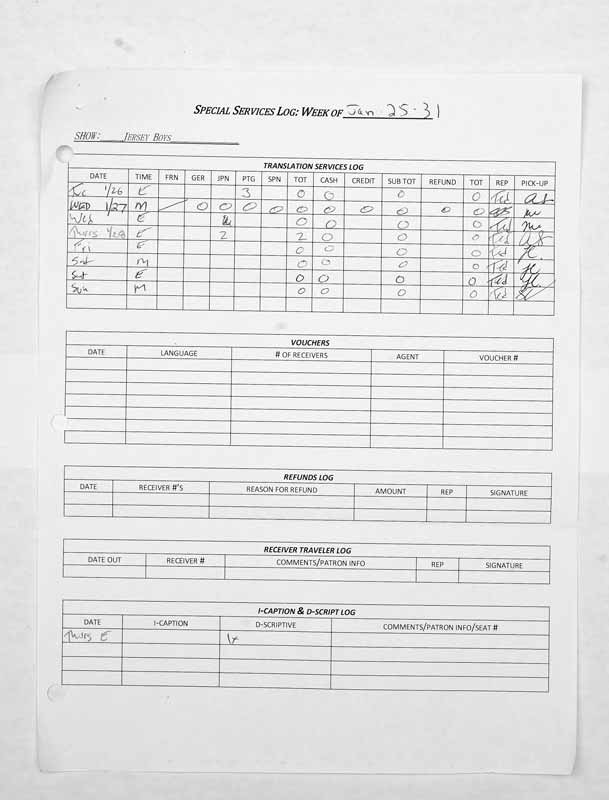 SPECIAL SERVICES LOG: WEEK OF Jan. 25-31
SHOW: JERSEY BOYS
TRANSLATION SERVICES LOG
DATE TIME FRN GER JPN PTG SPN TOT CASH CREDIT SUB TOT REFUND TOT REP PICK-UP
1/26 E 3 0 0 0 0 Ted
WED 1/27 M 0 0 0 0 0 0 0 0 0 0
Wed E 0 0 0 0 Ted
Thurs 1/28 E 2 2 0 0 0 Ted
Fri E 0 0 0 0 Ted
Sat M 0 0 0 0 Ted
Sat E 0 0 0 0 Ted
Sun M 0 0 0 0 Ted
VOUCHERS
DATE LANGUAGE # OF RECEIVERS AGENT VOUCHER #
REFUNDS LOG
DATE RECEIVER #'S REASON FOR REFUND AMOUNT REP SIGNATURE
RECEIVER TRAVELER LOG
DATE OUT RECEIVER # COMMENTS/PATRON INFO REP SIGNATURE
I-CAPTION & D-SCRIPT LOG
DATE I-CAPTION D-SCRIPTIVE COMMENTS/PATRON INFO/SEAT #
Thurs E